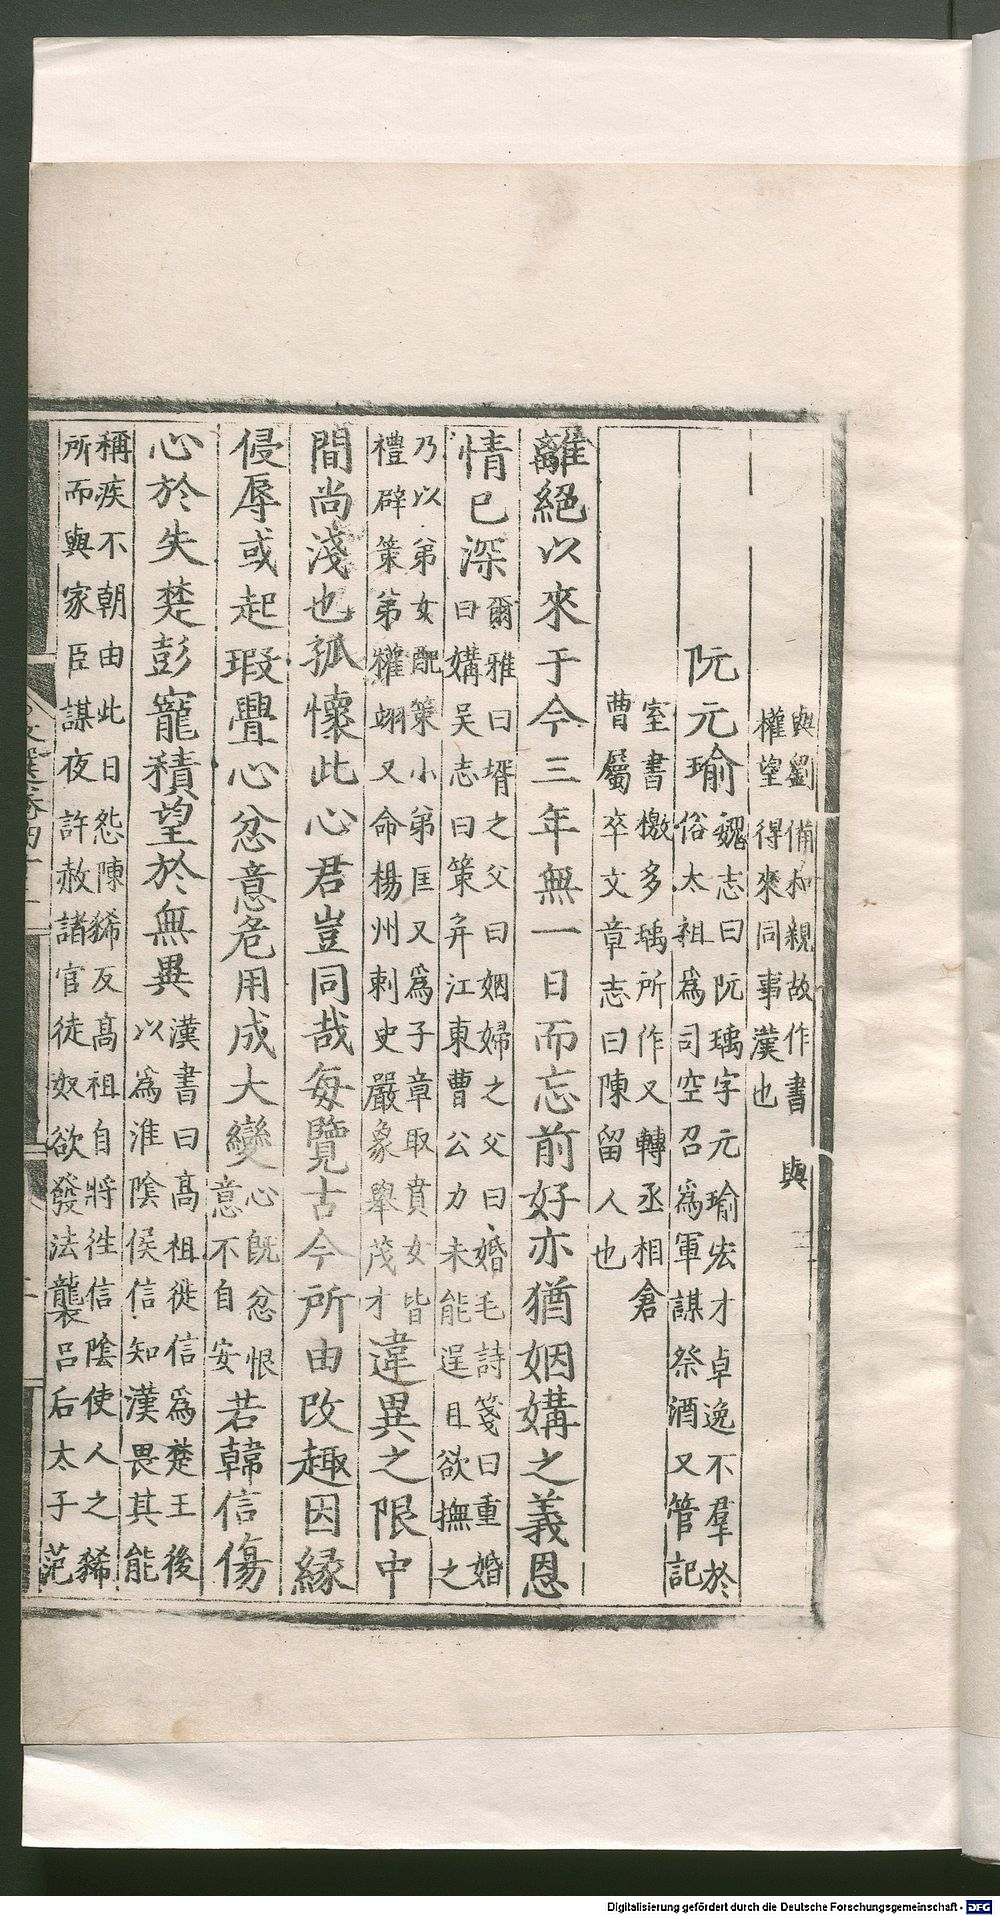 與劉備和親故作書與權望得來同事漢也
阮元瑜魏志曰阮瑀字元瑜宏才卓逸不羣於俗太祖爲司空召爲軍謀祭酒又管記
室書檄多瑀所作又轉丞相倉曹屬卒文章志曰陳留人也
離絕以來于今三年無一日而忘前好亦猶姻媾之義恩
情已深爾雅曰壻之父曰姻婦之父曰婚毛詩箋曰重婚曰媾吳志曰策并江東曹公力未能逞且欲撫之
乃以弟女配策小弟匡又爲子章取賁女皆禮辟策弟權翊又命楊州刺史嚴象舉茂才違異之限中
間尚淺也孤懷此心君豈同哉每覽古今所由改趣因緣
侵辱或起瑕舋心忿意危用成大變心旣忿恨意不自安若韓信傷
心於失楚彭寵積望於無異漢書曰高祖徙信爲楚王後以爲淮陰侯信知漢畏其能
稱疾不朝由此日怨陳豨反高祖自將往信陰使人之豨所而與家臣謀夜許赦諸官徒奴欲發法襲呂后太子范
Digitalisierung gefördert durch die Deutsche Forschungsgemeinschaft - DFG